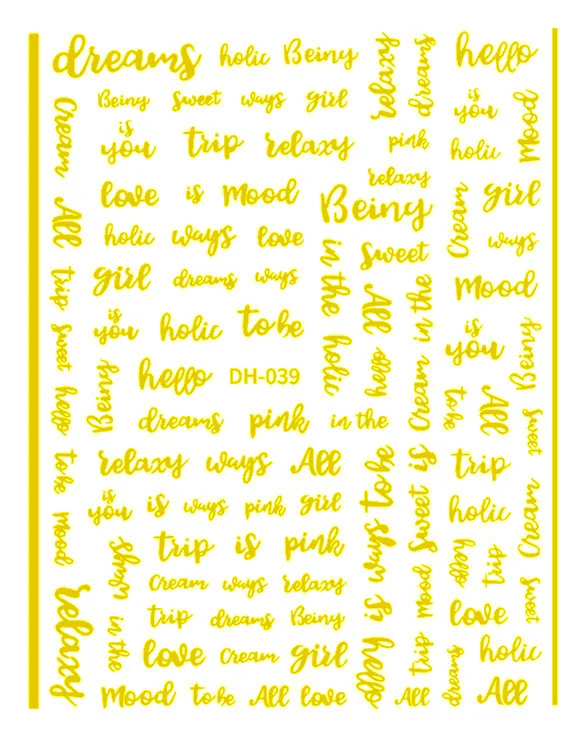 dreams holic Beiny
Beiny Sweet ways girl
is
you trip relaxy
love is Mood
holic ways love
girl dreams ways
is
you holic to be
hello DH-039
dreams pink in the
relaxy ways All
is
you is ways pink girl
trip is pink
Cream ways relaxy
trip dreams Beiny
love Cream girl
Mood to be All love
Cream
All
trip
Sweet
hello
to be
Mood
relaxy
Beiny
ways
in the
relaxy
dreams
pink
relaxy
Beiny
Sweet
in the
holic
All
hello
Cream in the
is ways to be
hello
Sweet is
Mood
trip
All
hello
is
you
holic
Mood
Cream
girl
ways
Mood
is
you
Beiny
to be
All
Sweet
trip
holic
Cream
hello
trip
Sweet
love
dreams
holic
All